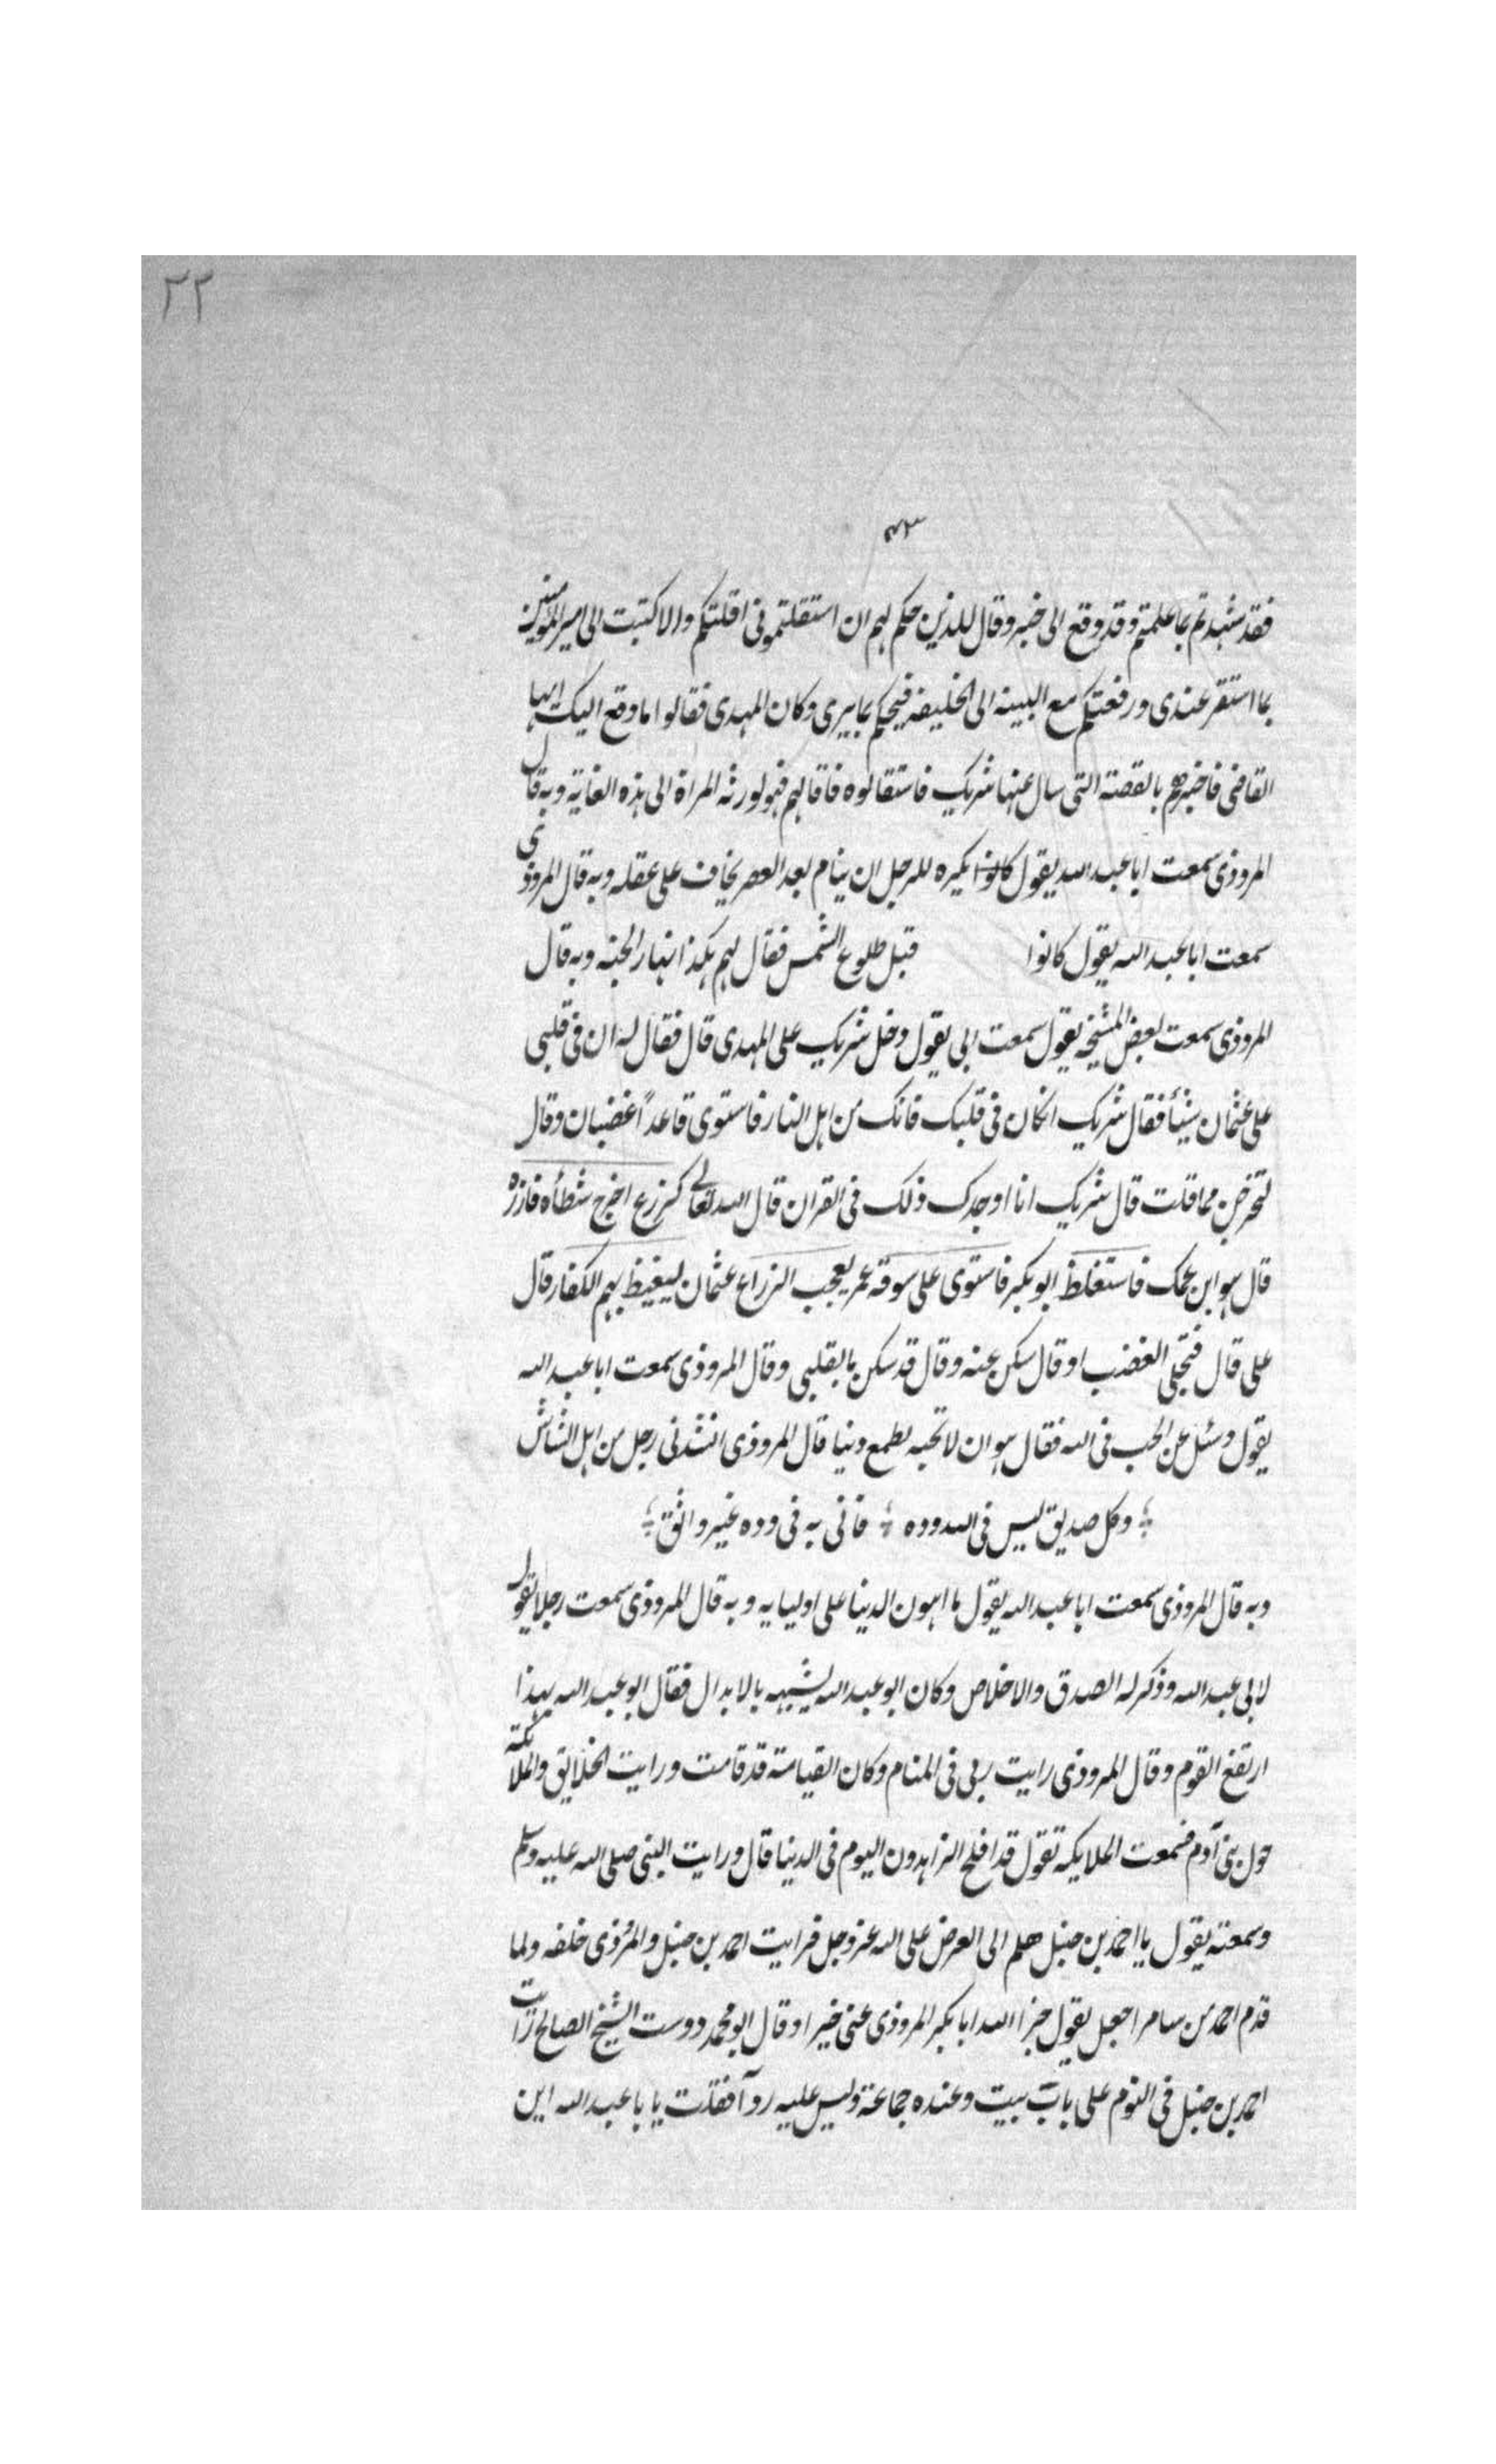 ٢٢
٤٣
فقد شهدتم بما علمتم وقد وقع الى خبر وقال للذين حكم لهم ان استقلتمونى اقلتكم والا كتبت الى امير المؤمنين
بما استقر عندى ورفعتكم مع البينة الى الخليفة فيحكم بما يرى وكان المهدى فقالوا ما وقع اليك ايها
القاضى فاخبرهم بالقصة التى سال عنها شريك فاستقالوه فاقالهم فهو لورثه المراة الى هذه الغاية وبه قال
المروذى سمعت ابا عبد الله يقول كانوا يكره للرجل ان ينام بعد العصر يخاف على عقله وبه قال المروذى
سمعت ابا عبد الله يقول كانوا قبل طلوع الشمس فقال لهم هكذا نهار الجنه وبه قال
المروذى سمعت بعض المشيخه يقول سمعت ابى يقول دخل شريك على المهدى قال فقال له ان فى قلبى
على عثمان شيئا فقال شريك ان كان فى قلبك فانك من اهل النار فاستوى قاعداً غضبان وقال
لتخرجن مما قلت قال شريك انا اوجدك ذلك فى القران قال الله تعالى كزرع اخرج شطأه فازره
قال هو ابن عمك فاستغلظ ابو بكر فاستوى على سوقه عمر يعجب الزراع عثمان ليغيظ بهم الكفار قال
على قال فتجلى الغضب او قال سكن عنه وقال قد سكن ما بقلبى وقال المروذى سمعت ابا عبد الله
يقول وسئل عن الحب فى الله فقال هو ان لا تحبه لطمع دنيا قال المروذى انشدنى رجل من اهل الشاش
وكل صديق ليس فى الله وده فانى به فى وده غير واثق
وبه قال المروذى سمعت ابا عبد الله يقول ما اهون الدنيا على اوليايه وبه قال المروذى سمعت رجلا يقول
لابى عبد الله وذكر له الصدق والاخلاص وكان ابو عبد الله يشبهه بالابدال فقال ابو عبد الله بهذا
ارتفع القوم وقال المروذى رايت ربى فى المنام وكان القيامة قد قامت ورايت الخلايق والملائكة
حول بنى آدم فسمعت الملايكه تقول قد افلح الزاهدون اليوم فى الدنيا قال ورايت النبى صلى الله عليه وسلم
وسمعته يقول يا احمد بن حنبل هلم الى العرض على الله عز وجل فرايت احمد بن حنبل والمروذى خلفه ولما
قدم احمد من سامرا جعل يقول جزا الله ابا بكر المروذى عنى خيرا وقال ابو محمد دوست الشيخ الصالح رايت
احمد بن حنبل فى النوم على باب بيت وعنده جماعة وليس عليه ردآ فقلت يا با عبد الله اين